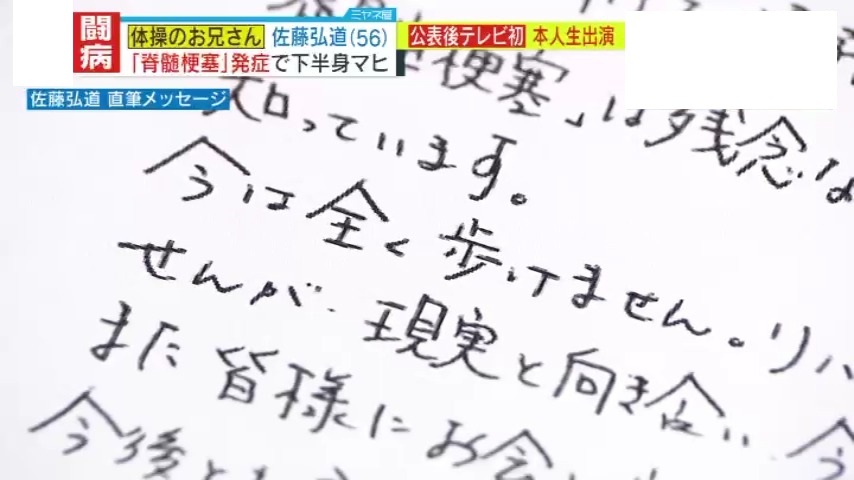 ミヤネ屋
闘病
体操のお兄さん 佐藤弘道(56)
「脊髄梗塞」発症で下半身マヒ
公表後テレビ初 本人生出演
佐藤弘道 直筆メッセージ
梗塞」は残念な
知っています。
今は全く歩けません。リハ
せんが、現実と向き合い、今
また皆様にお会
今後とも